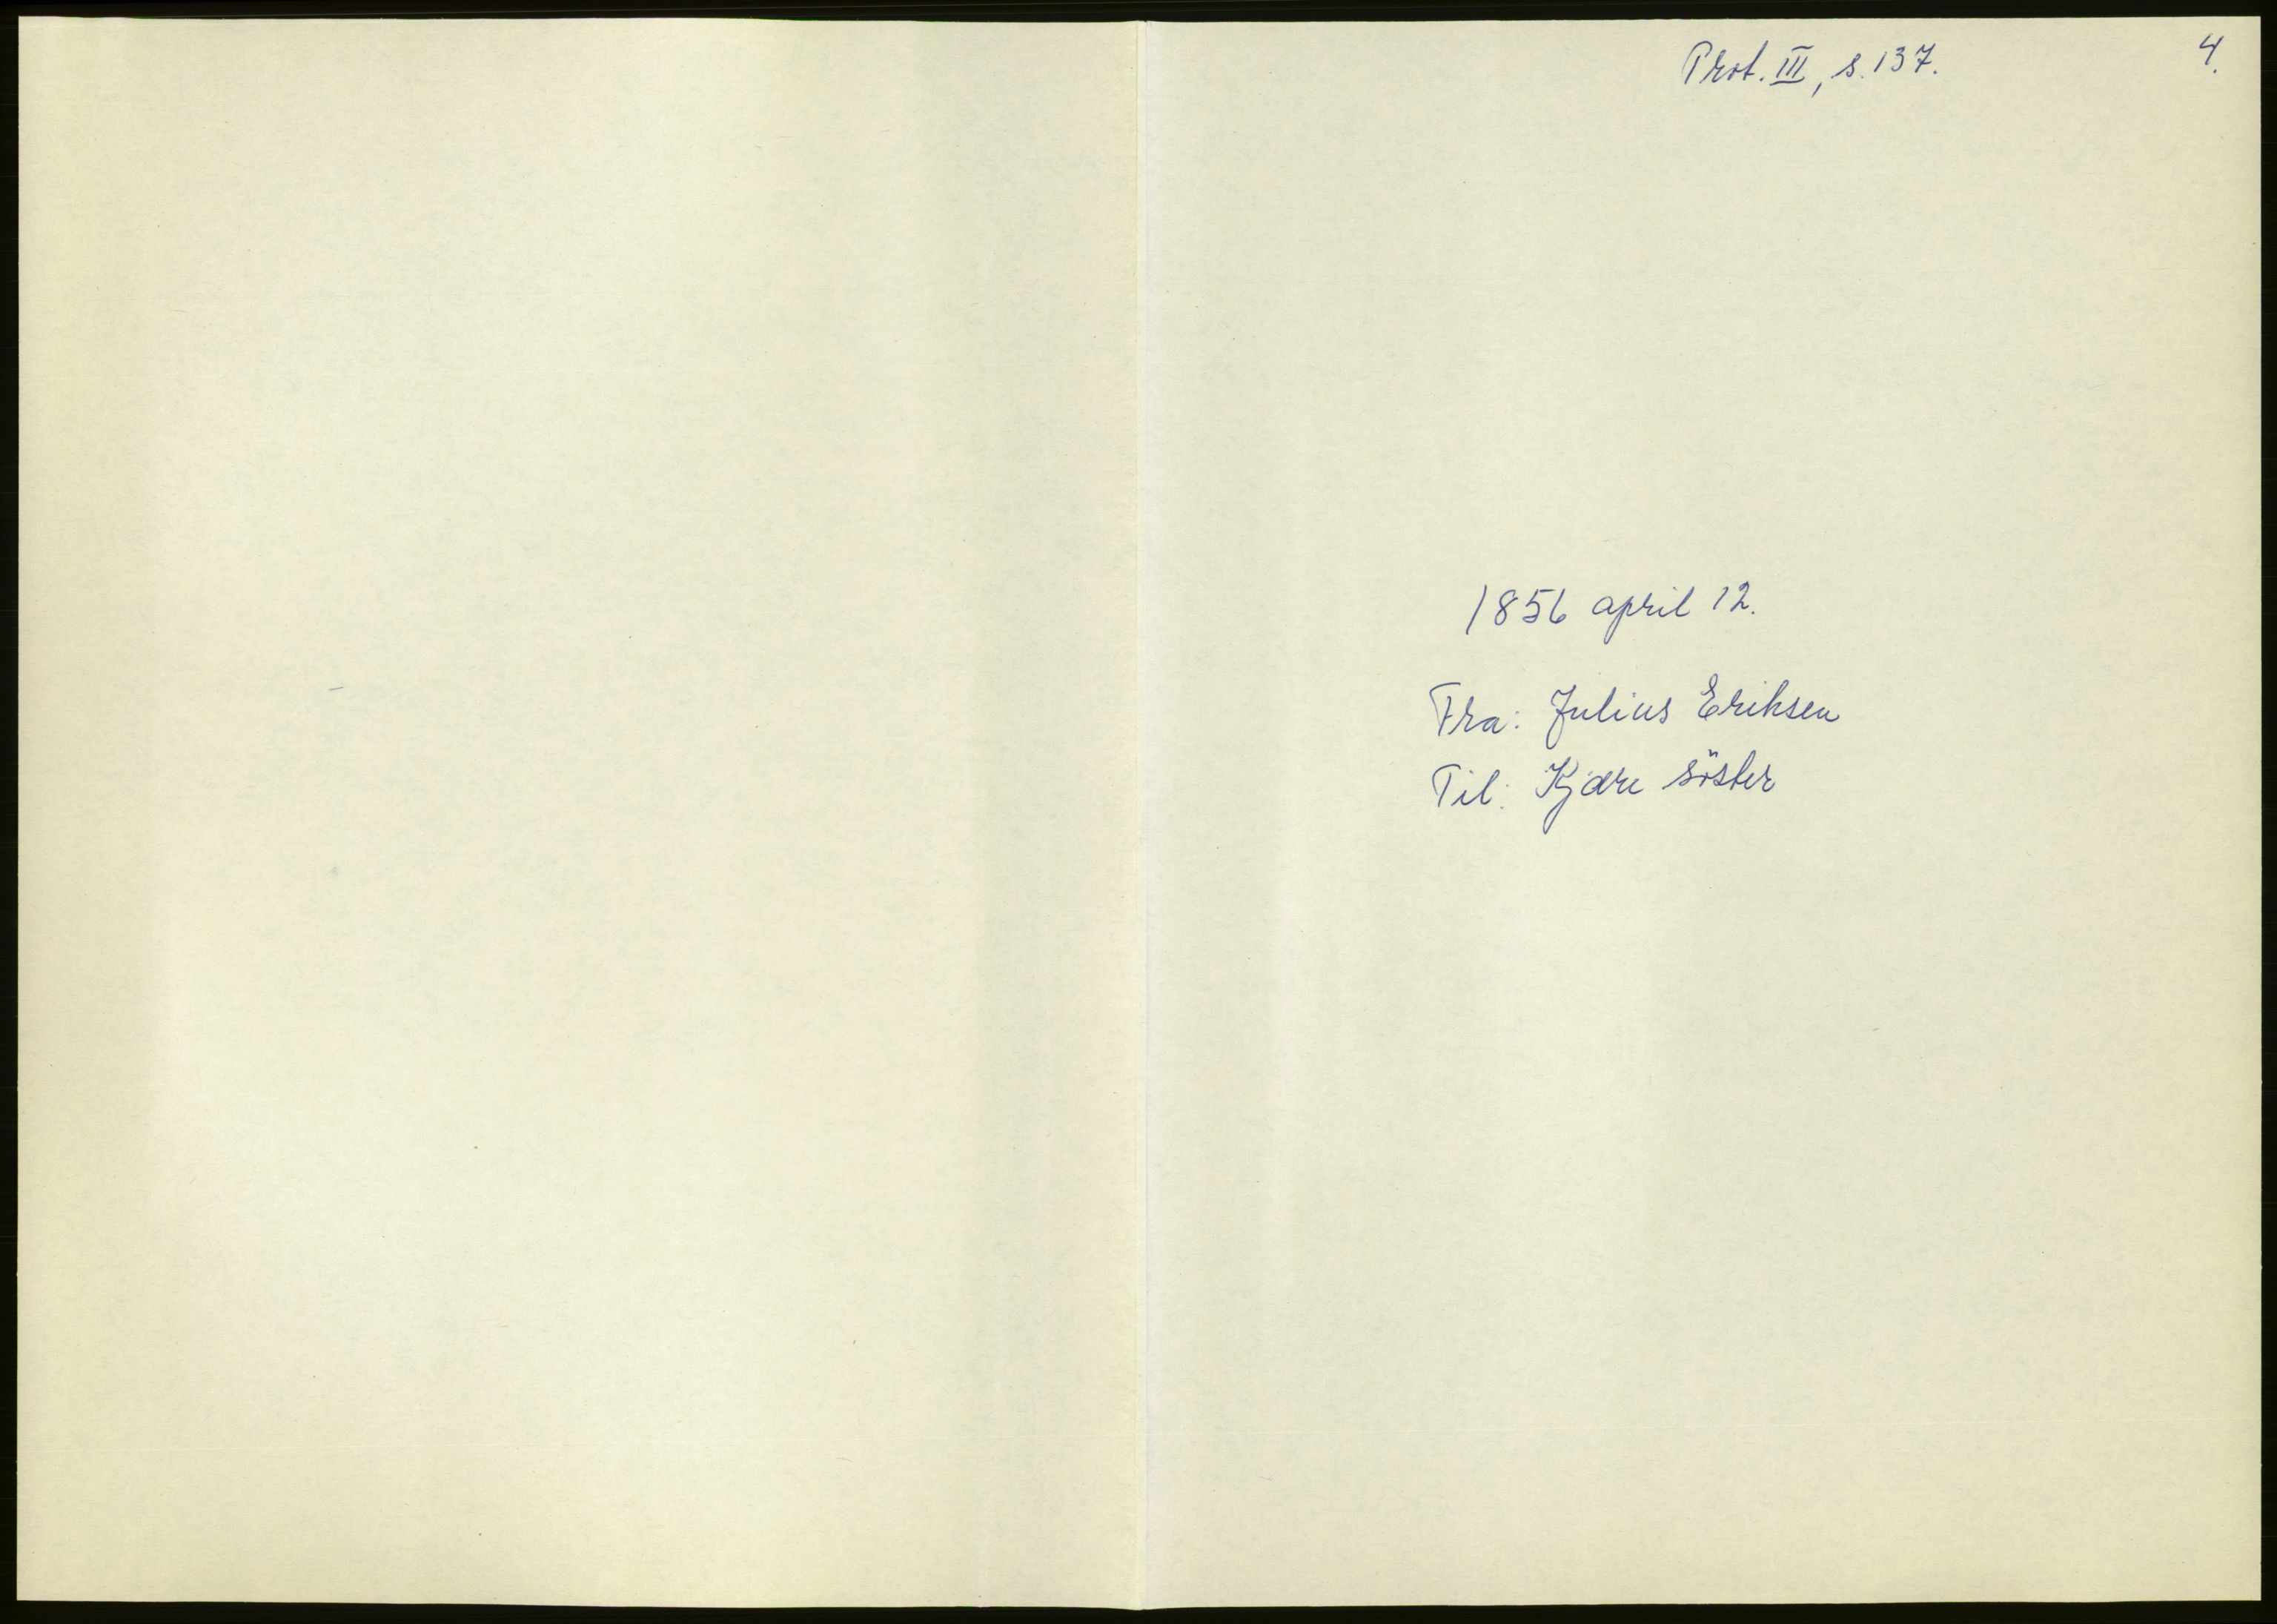 Prot. III, s. 137.
4.
1856 april 12.
Fra: Julius Eriksen
Til: Kjære söster